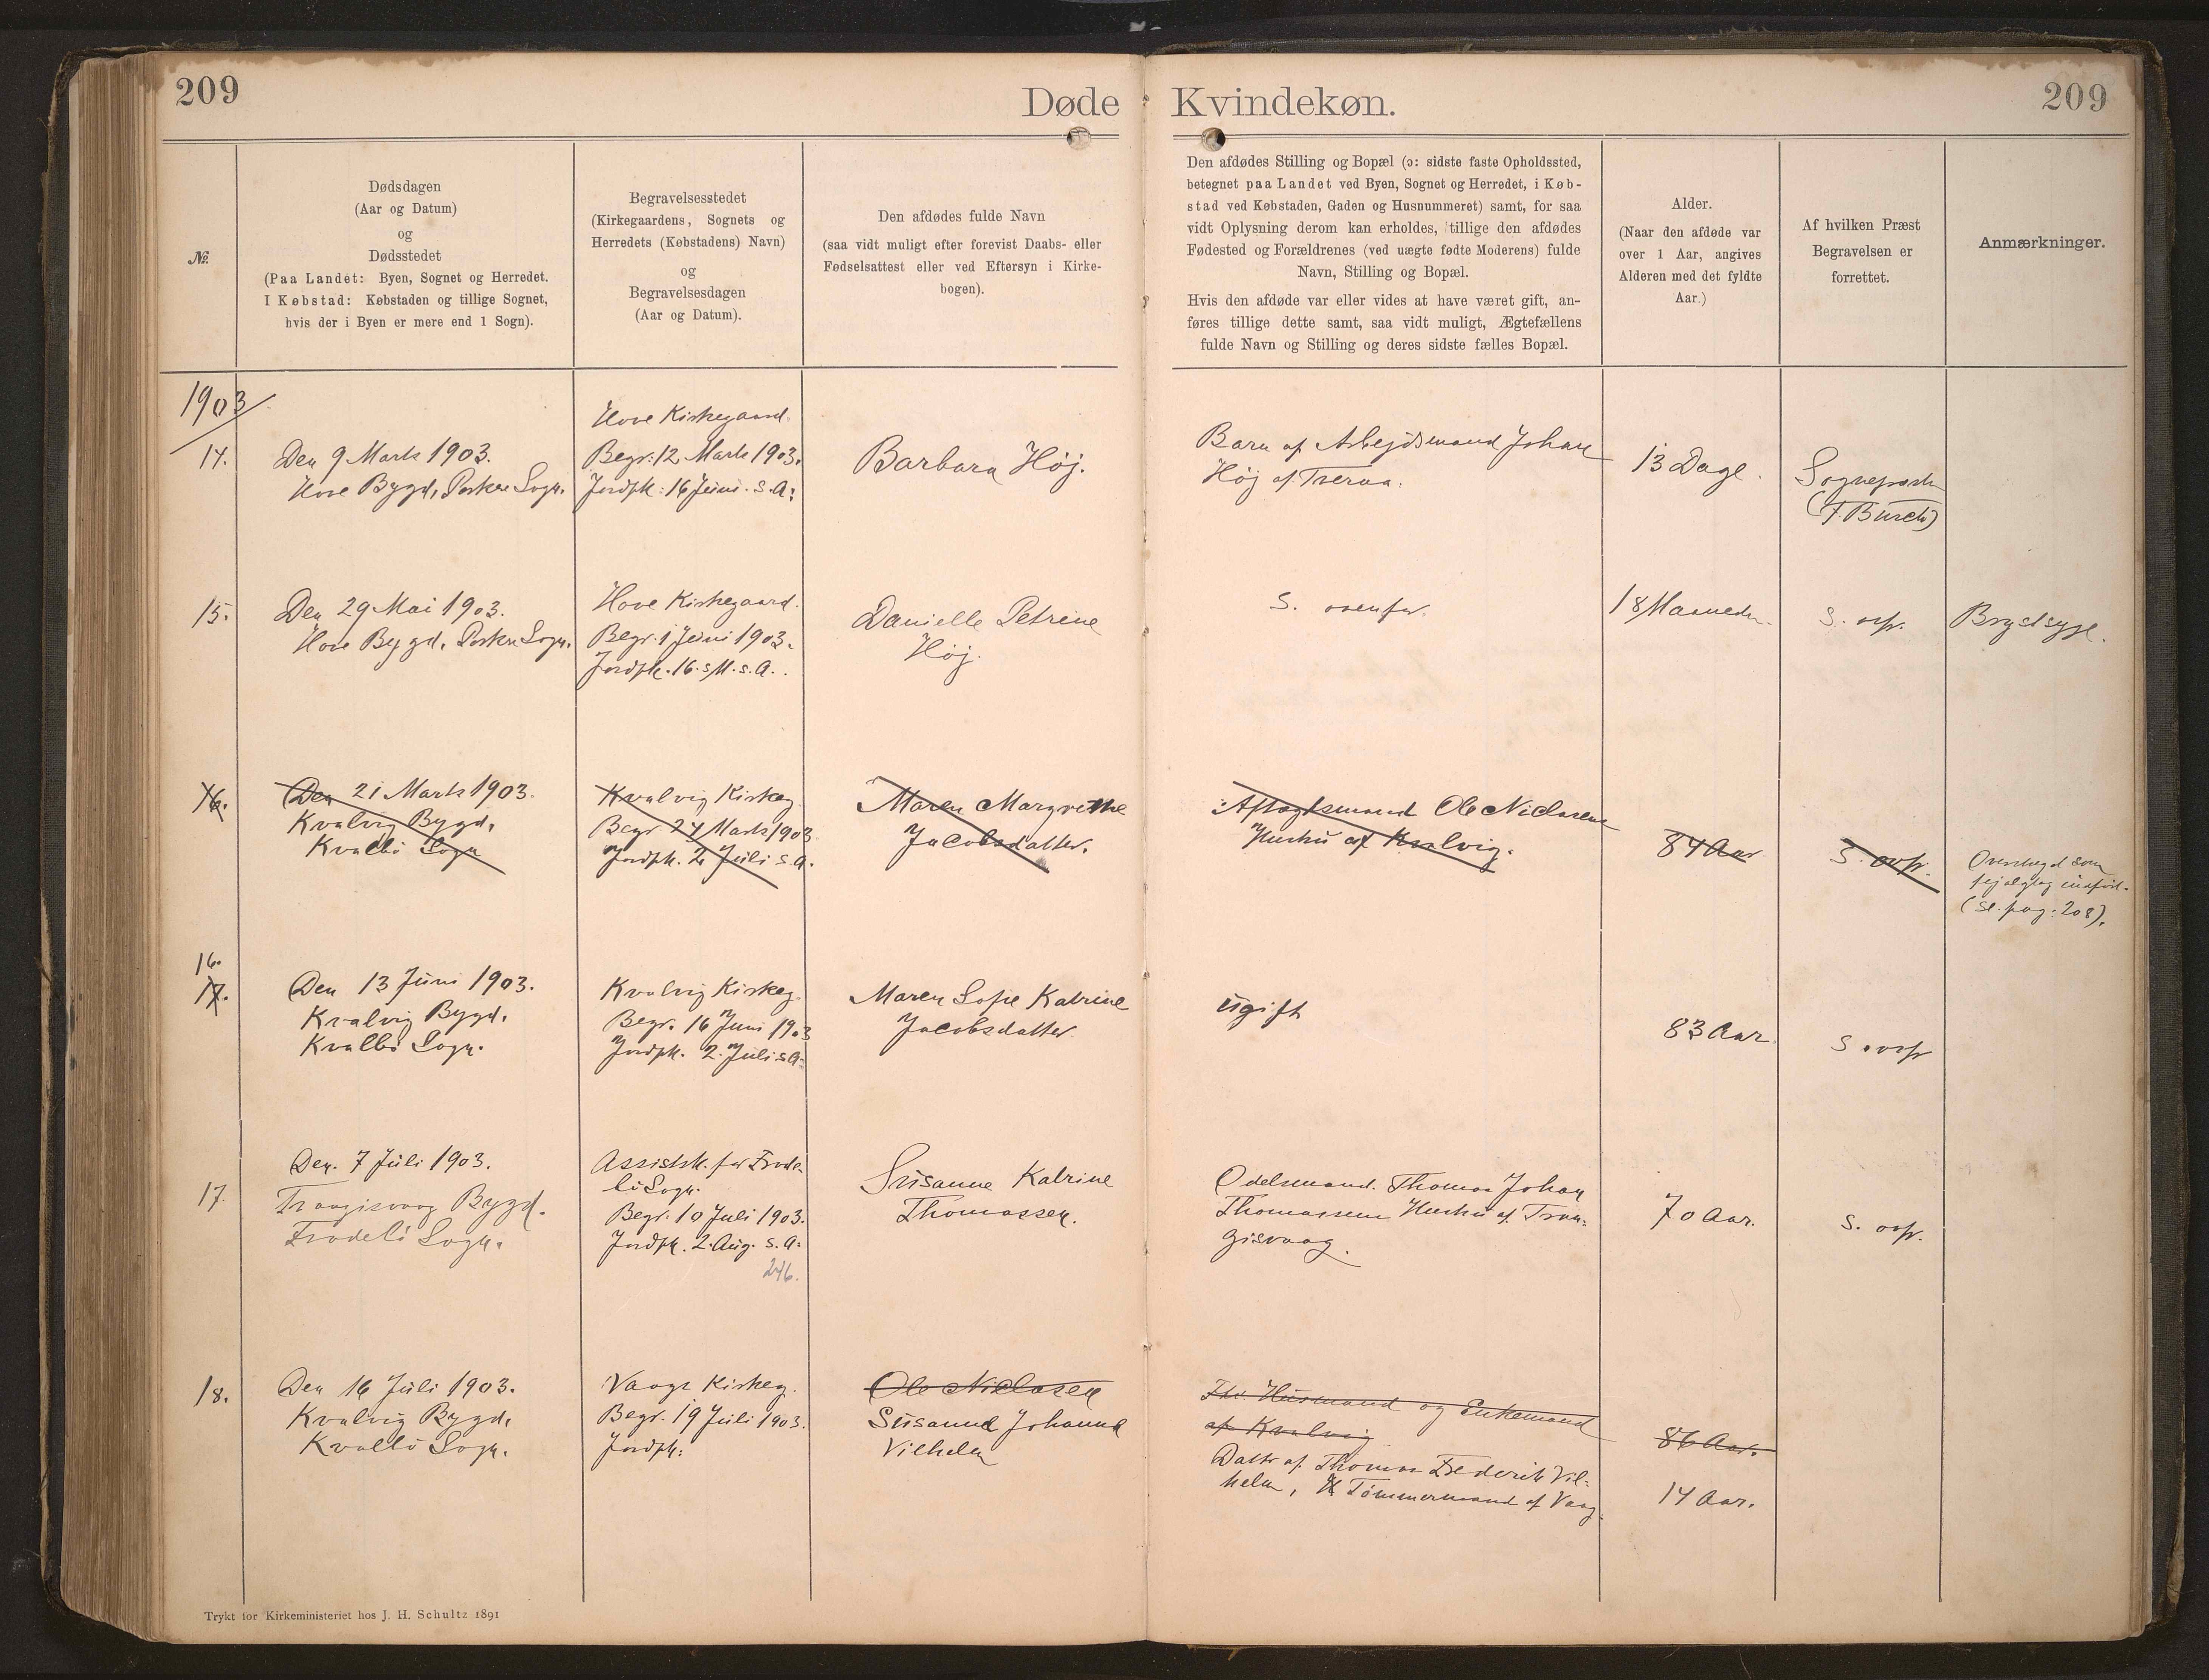 209
Døde Kvindekøn.
209
№.
Dødsdagen
(Aar og Datum)
og
Dødsstedet
(Paa Landet: Byen, Sognet og Herredet.
I Købstad: Købstaden og tillige Sognet,
hvis der i Byen er mere end 1 Sogn).
Begravelsesstedet
(Kirkegaardens, Sognets og
Herredets (Købstadens) Navn)
og
Begravelsesdagen
(Aar og Datum).
Den afdødes fulde Navn
(saa vidt muligt efter forevist Daabs- eller
Fødselsattest eller ved Eftersyn i Kirke-
bogen).
Den afdødes Stilling og Bopæl (ɔ: sidste faste Opholdssted,
betegnet paa Landet ved Byen, Sognet og Herredet, i Køb-
stad ved Købstaden, Gaden og Husnummeret) samt, for saa
vidt Oplysning derom kan erholdes, tillige den afdødes
Fødested og Forældrenes (ved uægte fødte Moderens) fulde
Navn, Stilling og Bopæl.
Hvis den afdøde var eller vides at have været gift, an-
føres tillige dette samt, saa vidt muligt, Ægtefællens
fulde Navn og Stilling og deres sidste fælles Bopæl.
Alder.
(Naar den afdøde var
over 1 Aar, angives
Alderen med det fyldte
Aar.)
Af hvilken Præst
Begravelsen er
forrettet.
Anmærkninger.
1903
14.
Den 9 Marts 1903.
Hove Bygd, Porkere Sogn.
Hove Kirkegaard.
Begr. 12 Marts 1903.
Jordpk. 16 Juni. s. A.
Barbara Høj.
Barn af Arbejdsmand Johan
Høj af Tveraa.
13 Dage.
Sognepræsten
(F. Burch)
15.
Den 29 Mai 1903.
Hove Bygd, Porkere Sogn.
Hove Kirkegaard.
Begr. 1 Juni 1903.
Jordpk. 16. s. M. s. A.
Danielle Petrine
Høj.
S. ovenfor.
18 Maaneder.
S. ovf.
Brystsyge.
16.
Den 21 Marts 1903.
Kvalvig Bygd,
Kvalbö Sogn
Kvalvig Kirkeg.
Begr. 24 Marts 1903
Jordpk. 2 Juli s. A.
Maren Margrethe
Jacobsdatter.
Aftægtsmand Ole Niclasens
Hustru af Kvalvig.
84 Aar
S. ovf.
Overstreget som
fejlagtig indført.
(se. pag. 208).
16.
17.
Den 13 Juni 1903.
Kvalvig Bygd.
Kvalbö Sogn.
Kvalvig Kirkeg.
Begr. 16 Juni 1903
Jordpk. 2. Juli s. A.
Maren Sofie Katrine
Jacobsdatter.
ugift
83 Aar
S. ovf
17.
Den. 7 Juli 1903.
Trangisvaag Bygd.
Frodebö Sogn.
Assistk. for Frode-
bö Sogn.
Begr. 10 Juli 1903.
Jordpk. 2. Aug. s. A.
246.
Susanne Katrine
Thomassen.
Odelsmand. Thomas Johan
Thomassens Hustru af Tran-
gisvaag.
70 Aar.
S. ovf.
18.
Den 16 Juli 1903.
Kvalvig Bygd,
Kvalbö Sogn.
Vaags Kirkeg.
Begr. 19 Juli 1903.
Jordpk:
Ole Niclasen
Susanne Johanne
Vilhelm
Fhv. Husmand og Enkemand
af Kvalvig
Datter af Thomas Frederik Vil-
helm, Tömmermand af Vaag.
86 Aar.
14 Aar.
Trykt for Kirkeministeriet hos J. H. Schultz 1891